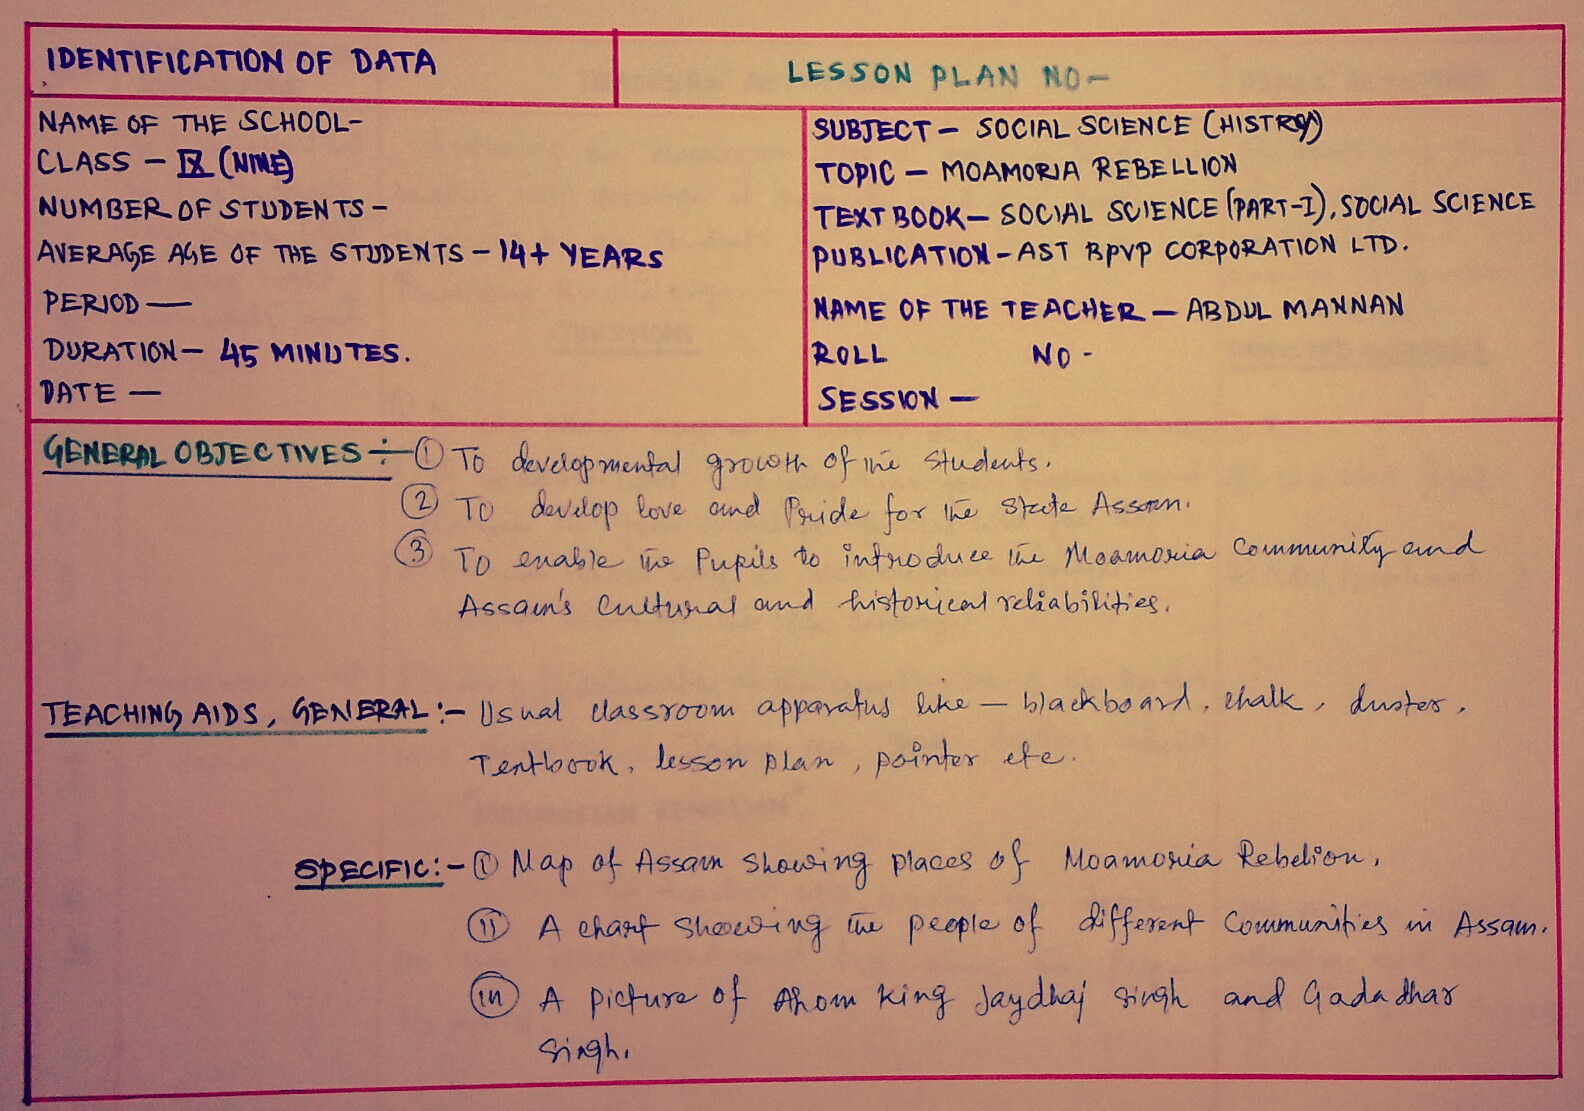 IDENTIFICATION OF DATA
LESSON PLAN NO-
NAME OF THE SCHOOL-
CLASS - IX (NINE)
NUMBER OF STUDENTS -
AVERAGE AGE OF THE STUDENTS - 14+ YEARS
PERIOD —
DURATION - 45 MINUTES.
DATE —
SUBJECT - SOCIAL SCIENCE (HISTRY)
TOPIC - MOAMORIA REBELLION
TEXT BOOK - SOCIAL SCIENCE (PART-I), SOCIAL SCIENCE
PUBLICATION - AST BPVP CORPORATION LTD.
NAME OF THE TEACHER - ABDUL MANNAN
ROLL NO -
SESSION —
GENERAL OBJECTIVES :- ① To developmental growth of the students.
② To develop love and Pride for the State Assam.
③ To enable the Pupils to introduce the Moamoria Community and
Assam's Cultural and historical reliabilities.
TEACHING AIDS, GENERAL :- Usual classroom apparatus like — blackboard, chalk, duster,
Textbook, lesson plan, pointer etc.
SPECIFIC :- ⓘ Map of Assam Showing places of Moamoria Rebelion,
ⓘⓘ A chart Showing the people of different Communities in Assam.
ⓘⓘⓘ A picture of Ahom King Jaydhaj Singh and Gadadhar
Singh.